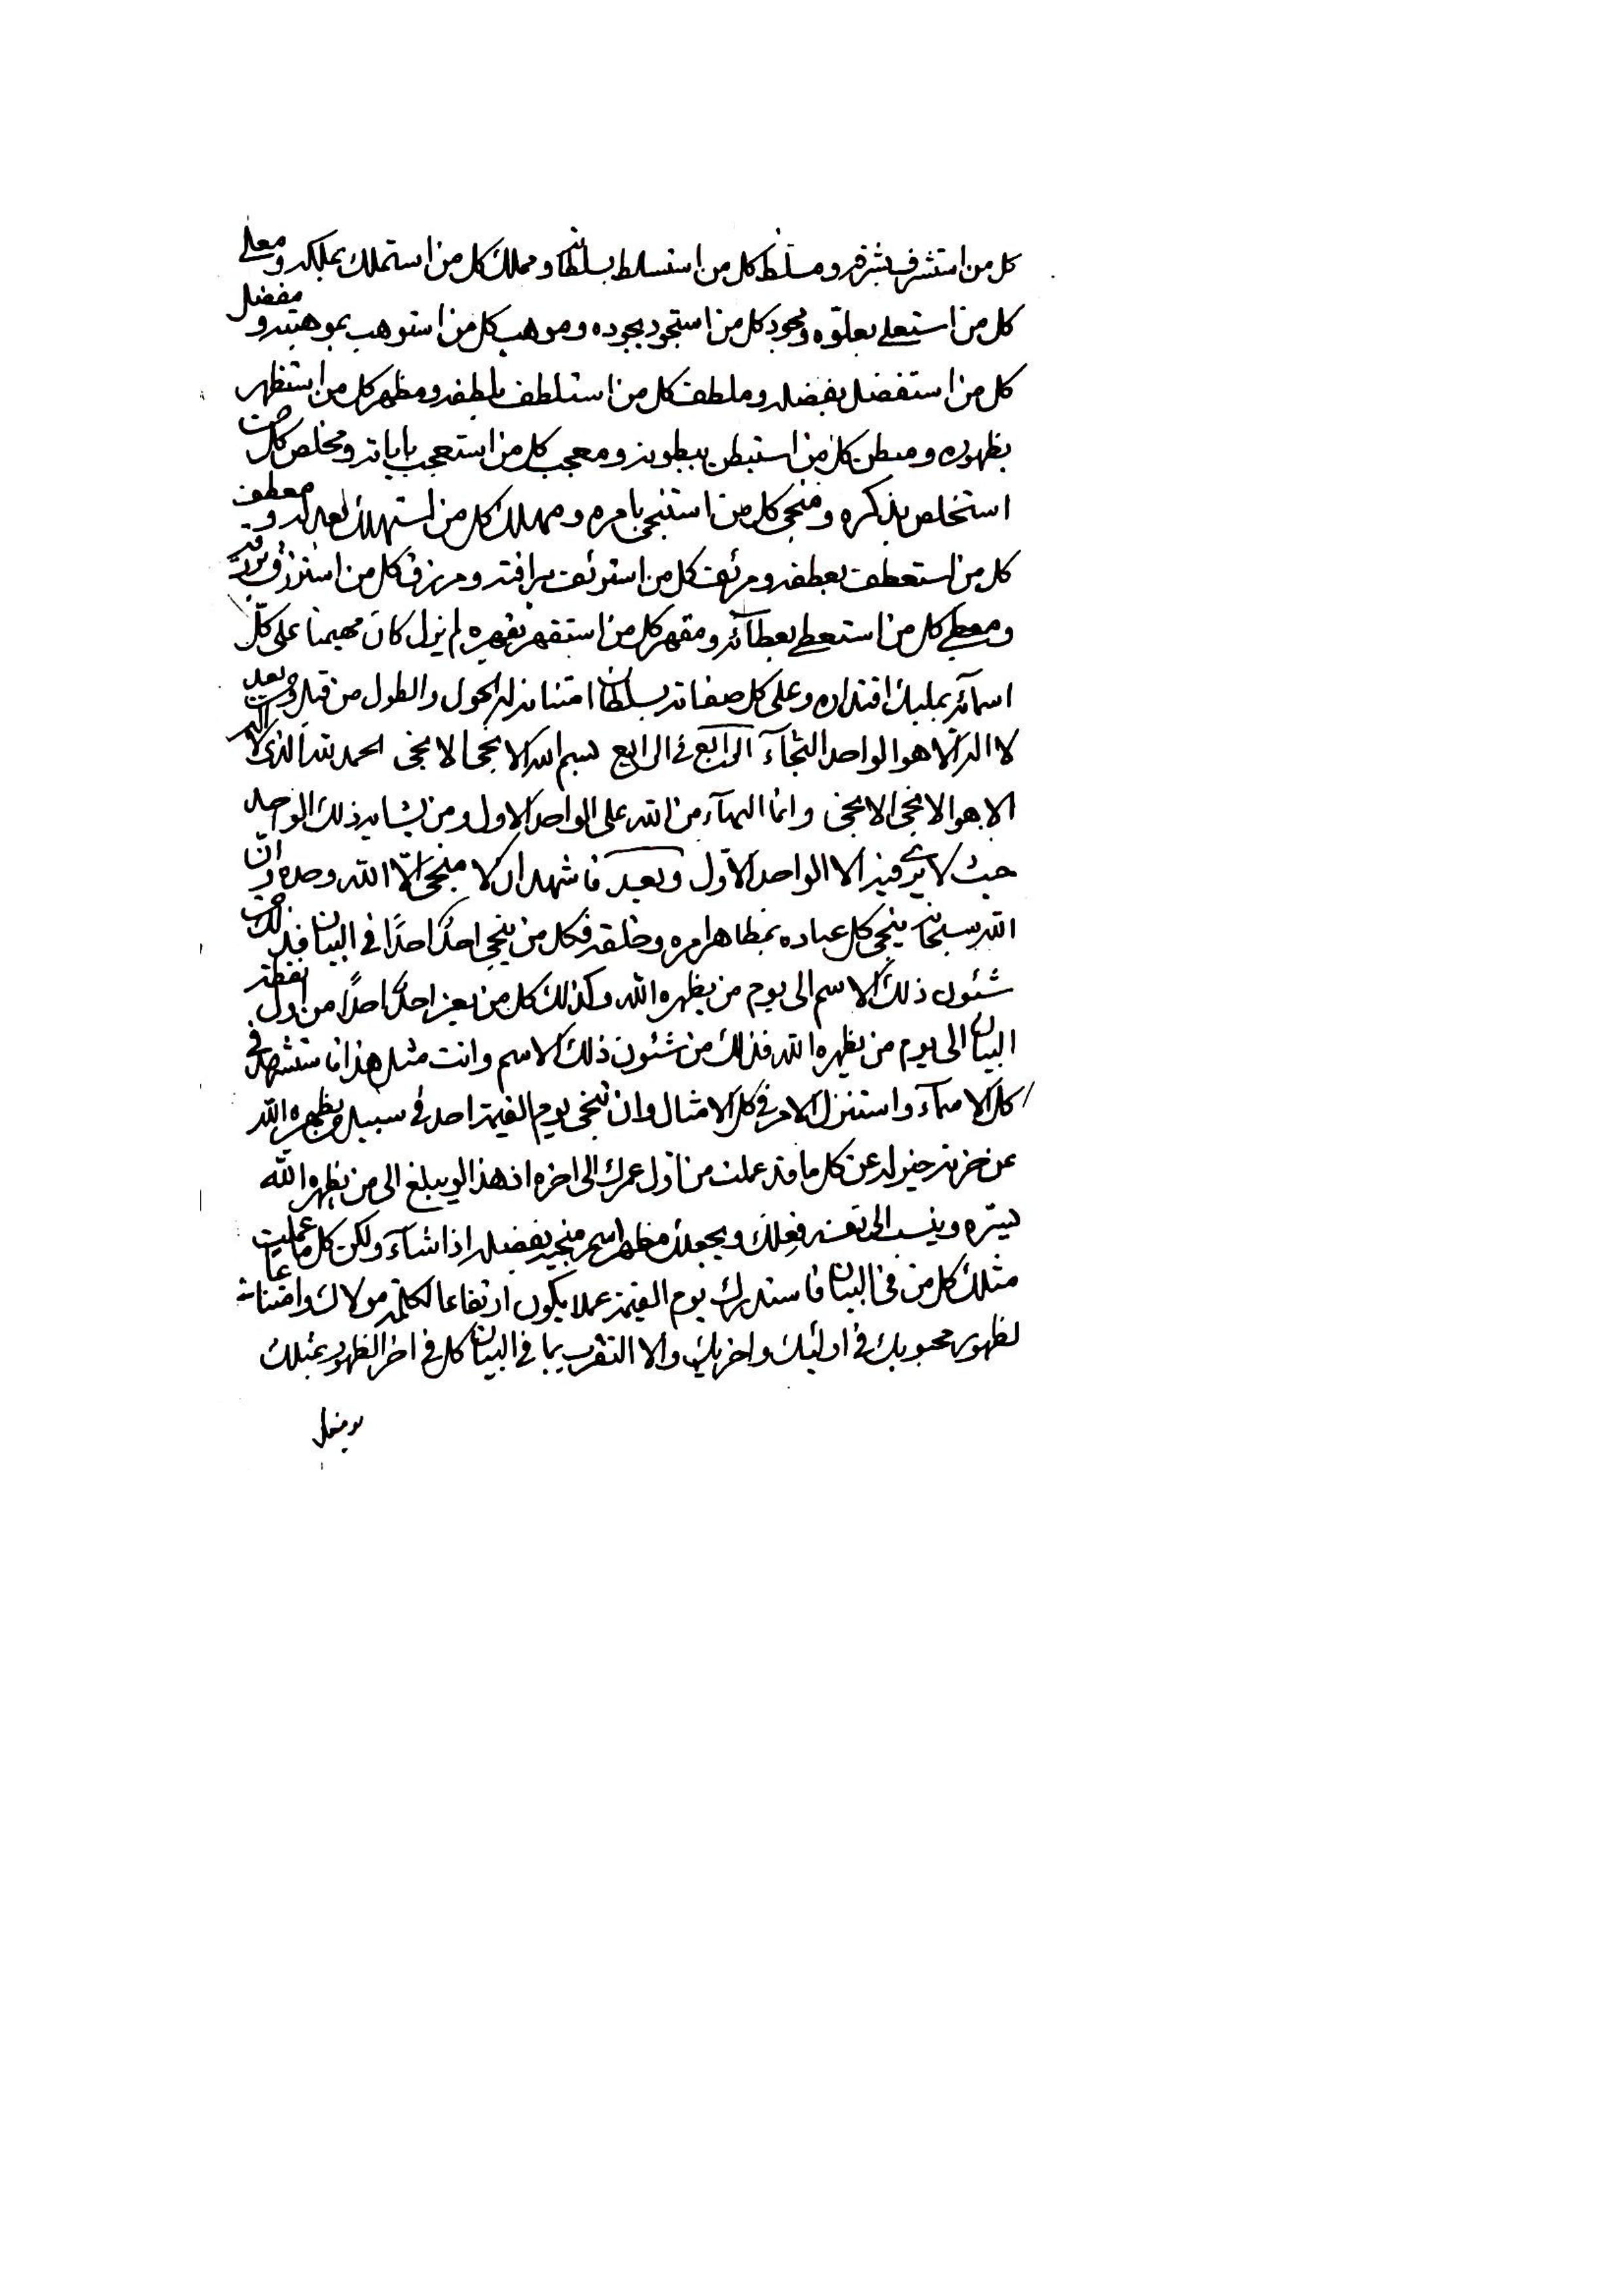 كل من استشرف بشرفه و مسلط كل من استسلط بسلطانه و مملك كل من استملك بملكه و معلي
كل من استعلى بعلوه و مجود كل من استجود بجوده و موهب كل من استوهب بموهبته و مفضل
كل من استفضل بفضله و ملطف كل من استلطف بلطفه و مظهر كل من استظهر
بظهوره و مبطن كل من استبطن ببطونه و معجب كل من استعجب باياته و مخلص كل من
استخلص بذكره و منجى كل من استنجى بامره و مهلك كل من استهلك بعدله و معطف
كل من استعطف بعطفه و مرئف كل من استرئف برافته و مرزق كل من استرزق برزقه
و معطي كل من استعطى بعطآئه و مقهر كل من استقهر بقهره لم يزل كان مهيمنا على كل
اسمآئه بمليك اقتداره و على كل صفاته بسلطان امتنانه له الحول والطول من قبل و من بعد
لا اله الا هو الواحد النجآء الرابع في الرابع بسم الله الانجى الانجى الحمد لله الذي لا اله
الا هو الانجى الانجى و انما البهآء من الله على الواحد الاول و من يشابه ذلك الواحد
حيث لا يرى فيه الا الواحد الاول و بعد فاشهد ان لا منجى الا الله وحده و ان
الله سبحانه ينجى كل عباده بمظاهر امره و خلقه فكل من ينجى احدًا احدًا في البيان فذلك من
شئون ذلك الاسم الى يوم من يظهره الله و كذلك كل من يعز احدًا احدًا من اول نقطة
البيان الى يوم من يظهره الله فذلك من شئون ذلك الاسم و انت مثل هذا فاستشهد في
كل الاسمآء و استنزل الامر في كل الامثال و ان تنجى يوم القيمة احد في سبيل من يظهره الله
عن حزنه خير لك عن كل ما قد عملت من اول عمرك الى اخره اذ هذا ليبلغ الى من يظهره الله
سيره و ينسب الى نفسه فعلك و يجعلك مظهر اسم منجيه بفضله اذا شآء ولكن كل ما عملت
مثلك كل من في البيان فاستدرك يوم القيمة عملا يكون ارتفاعا لكلمة مولاك و امتناعا
لظهور محبوبك في اوليك و اخريك و الا التقرب بما في البيان كل في اخر الظهور بمثلك